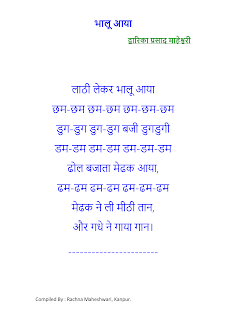 भालू आया
द्वारिका प्रसाद माहेश्वरी
लाठी लेकर भालू आया
छम-छम छम-छम छम-छम-छम
डुग-डुग डुग-डुग बजी डुगडुगी
डम-डम डम-डम डम-डम-डम
ढोल बजाता मेढक आया,
ढम-ढम ढम-ढम ढम-ढम-ढम
मेढक ने ली मीठी तान,
और गधे ने गाया गान।
-----------------------
Compiled By : Rachna Maheshwari, Kanpur.